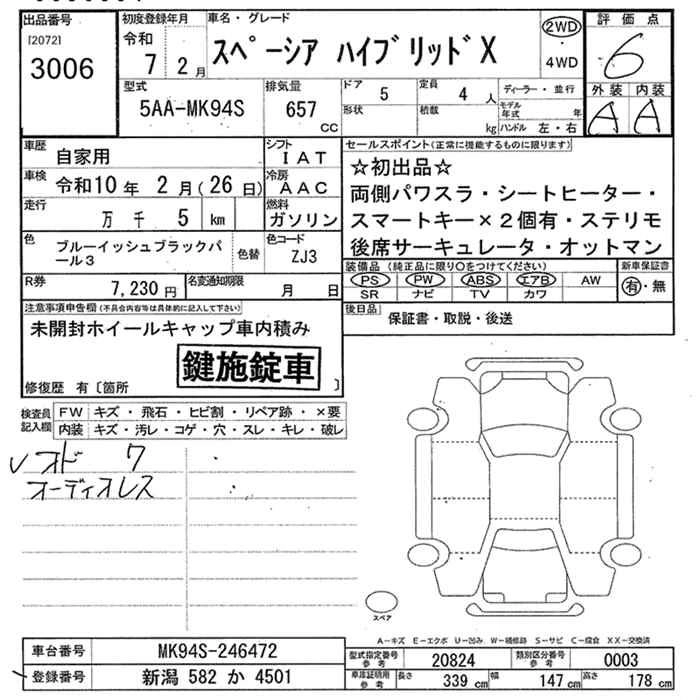 出品番号
[2072]
3006
初度登録年月
令和
7 2月
車名・グレード
スペーシア ハイブリッドX
2WD
・
4WD
評価点
6
型式
5AA-MK94S
排気量
657
CC
ドア
5
形状
定員
4 人
積載
kg
ディーラー・並行
モデル年式 年
ハンドル 左・右
外装 内装
A A
車歴
自家用
シフト
IAT
車検
令和10年 2月(26日)
冷房
AAC
走行
万 千 5 km
燃料
ガソリン
色
ブルーイッシュブラックパール3
色替
色コード
ZJ3
R券
7,230円
名変通知期限
月 日
セールスポイント(正常に機能するものに限ります)
☆初出品☆
両側パワスラ・シートヒーター・
スマートキー×2個有・ステリモ
後席サーキュレータ・オットマン
装備品(純正品に限り○をつけてください)
新車保証書
PS PW ABS エアB AW
SR ナビ TV カワ
有・無
後日品
保証書・取説・後送
注意事項申告欄(不具合内容等は具体的に記入して下さい)
未開封ホイールキャップ車内積み
鍵施錠車
修復歴 有〔箇所 〕
検査員記入欄
FW キズ・飛石・ヒビ割・リペア跡・×要
内装 キズ・汚レ・コゲ・穴・スレ・キレ・破レ
レオド 7
オーディオレス
スペア
A-キズ E-エクボ U-凹み W-補修跡 S-サビ C-腐食 XX-交換済
車台番号
MK94S-246472
登録番号
新潟 582 か 4501
型式指定番号
参考
20824
類別区分番号
参考
0003
車庫証明用
参考
長さ 339 cm 幅 147 cm 高さ 178 cm